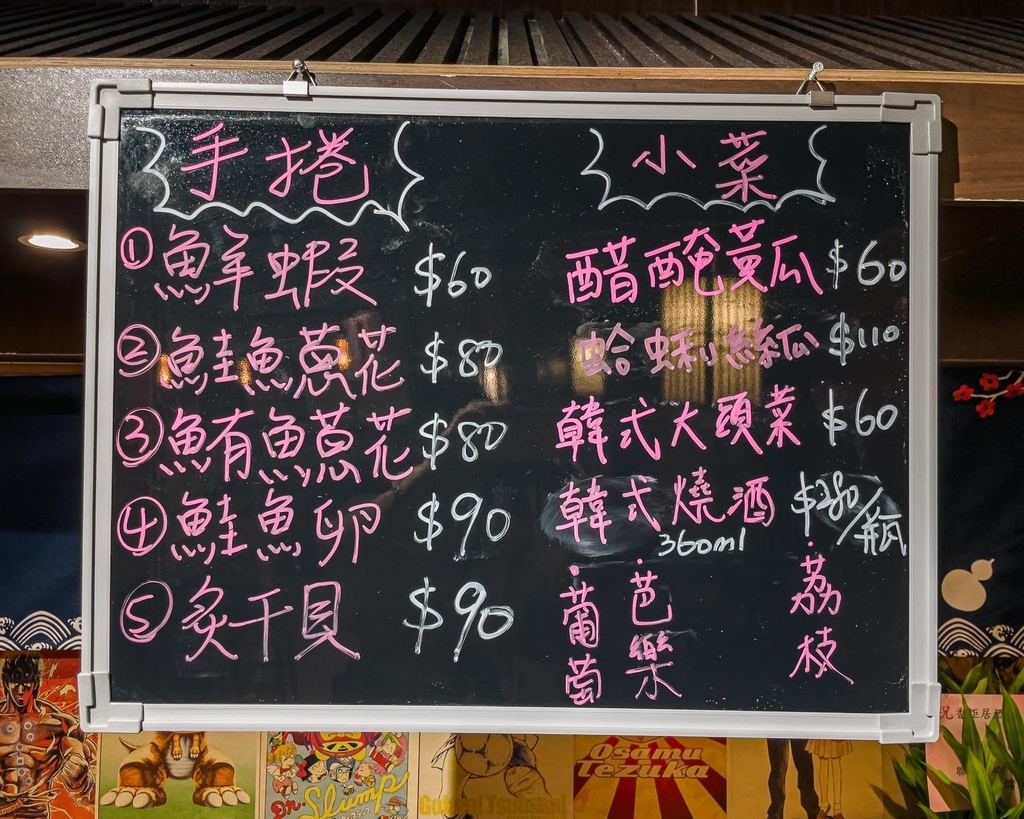 手捲
①鮮蝦 $60
②鮭魚蔥花 $80
③鮪魚蔥花 $80
④鮭魚卵 $90
⑤炙干貝 $90
小菜
醋醃黃瓜 $60
蛤蜊絲瓜 $110
韓式大頭菜 $60
韓式燒酒 /瓶
360ml
·葡萄
·芭樂
·荔枝
Dr. Slump
Osamu
Tezuka